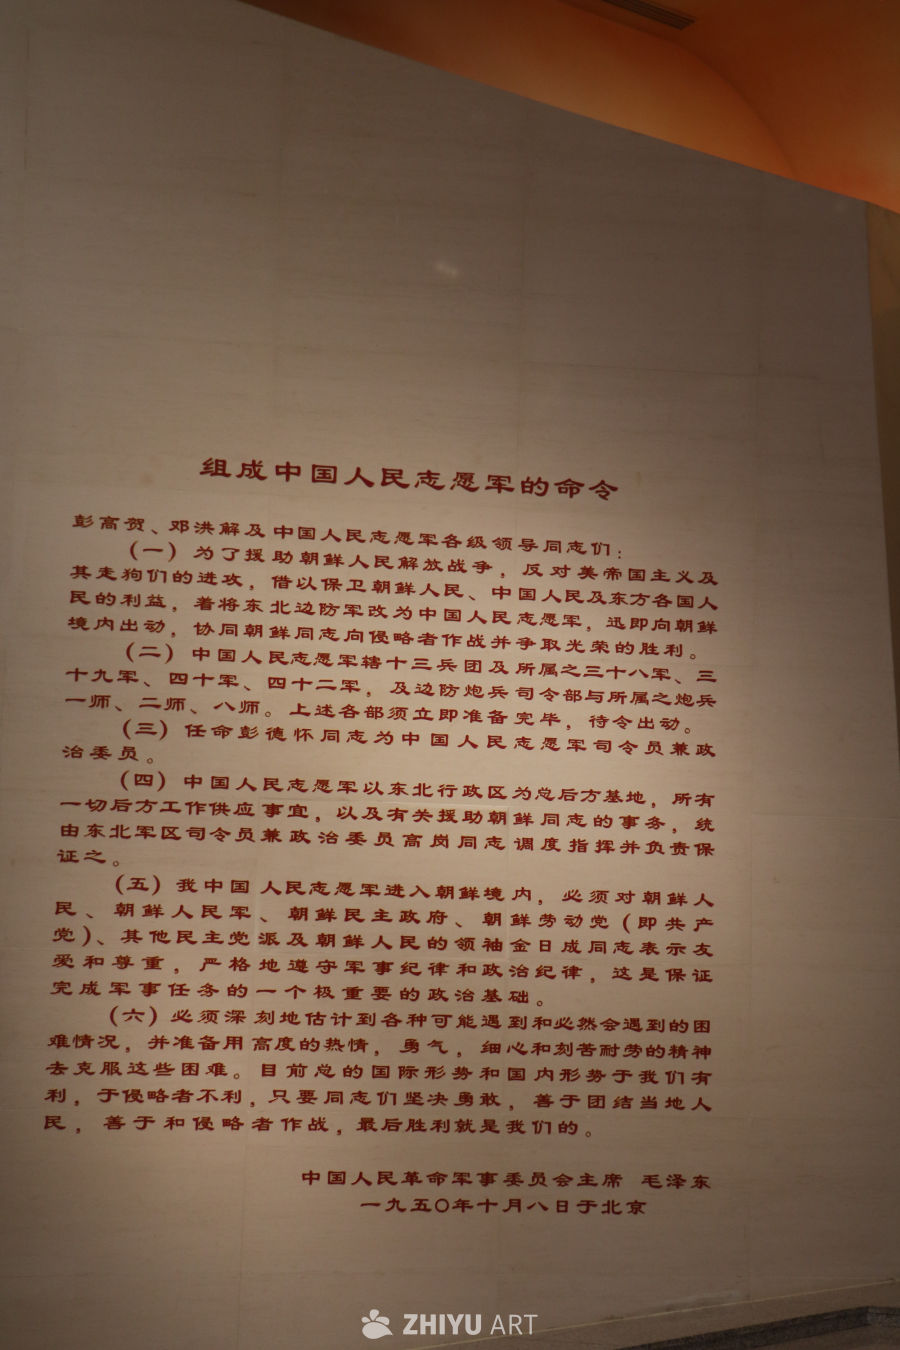 组成中国人民志愿军的命令
彭高贺、邓洪解及中国人民志愿军各级领导同志们：
（一）为了援助朝鲜人民解放战争，反对美帝国主义及
其走狗们的进攻，借以保卫朝鲜人民、中国人民及东方各国人
民的利益，着将东北边防军改为中国人民志愿军，迅即向朝鲜
境内出动，协同朝鲜同志向侵略者作战并争取光荣的胜利。
（二）中国人民志愿军辖十三兵团及所属之三十八军、三
十九军、四十军、四十二军，及边防炮兵司令部与所属之炮兵
一师、二师、八师。上述各部须立即准备完毕，待令出动。
（三）任命彭德怀同志为中国人民志愿军司令员兼政
治委员。
（四）中国人民志愿军以东北行政区为总后方基地，所有
一切后方工作供应事宜，以及有关援助朝鲜同志的事务，统
由东北军区司令员兼政治委员高岗同志调度指挥并负责保
证之。
（五）我中国人民志愿军进入朝鲜境内，必须对朝鲜人
民、朝鲜人民军、朝鲜民主政府、朝鲜劳动党（即共产
党）、其他民主党派及朝鲜人民的领袖金日成同志表示友
爱和尊重，严格地遵守军事纪律和政治纪律，这是保证
完成军事任务的一个极重要的政治基础。
（六）必须深刻地估计到各种可能遇到和必然会遇到的困
难情况，并准备用高度的热情，勇气，细心和刻苦耐劳的精神
去克服这些困难。目前总的国际形势和国内形势于我们有
利，于侵略者不利，只要同志们坚决勇敢，善于团结当地人
民，善于和侵略者作战，最后胜利就是我们的。
中国人民革命军事委员会主席 毛泽东
一九五〇年十月八日于北京
ZHIYU ART